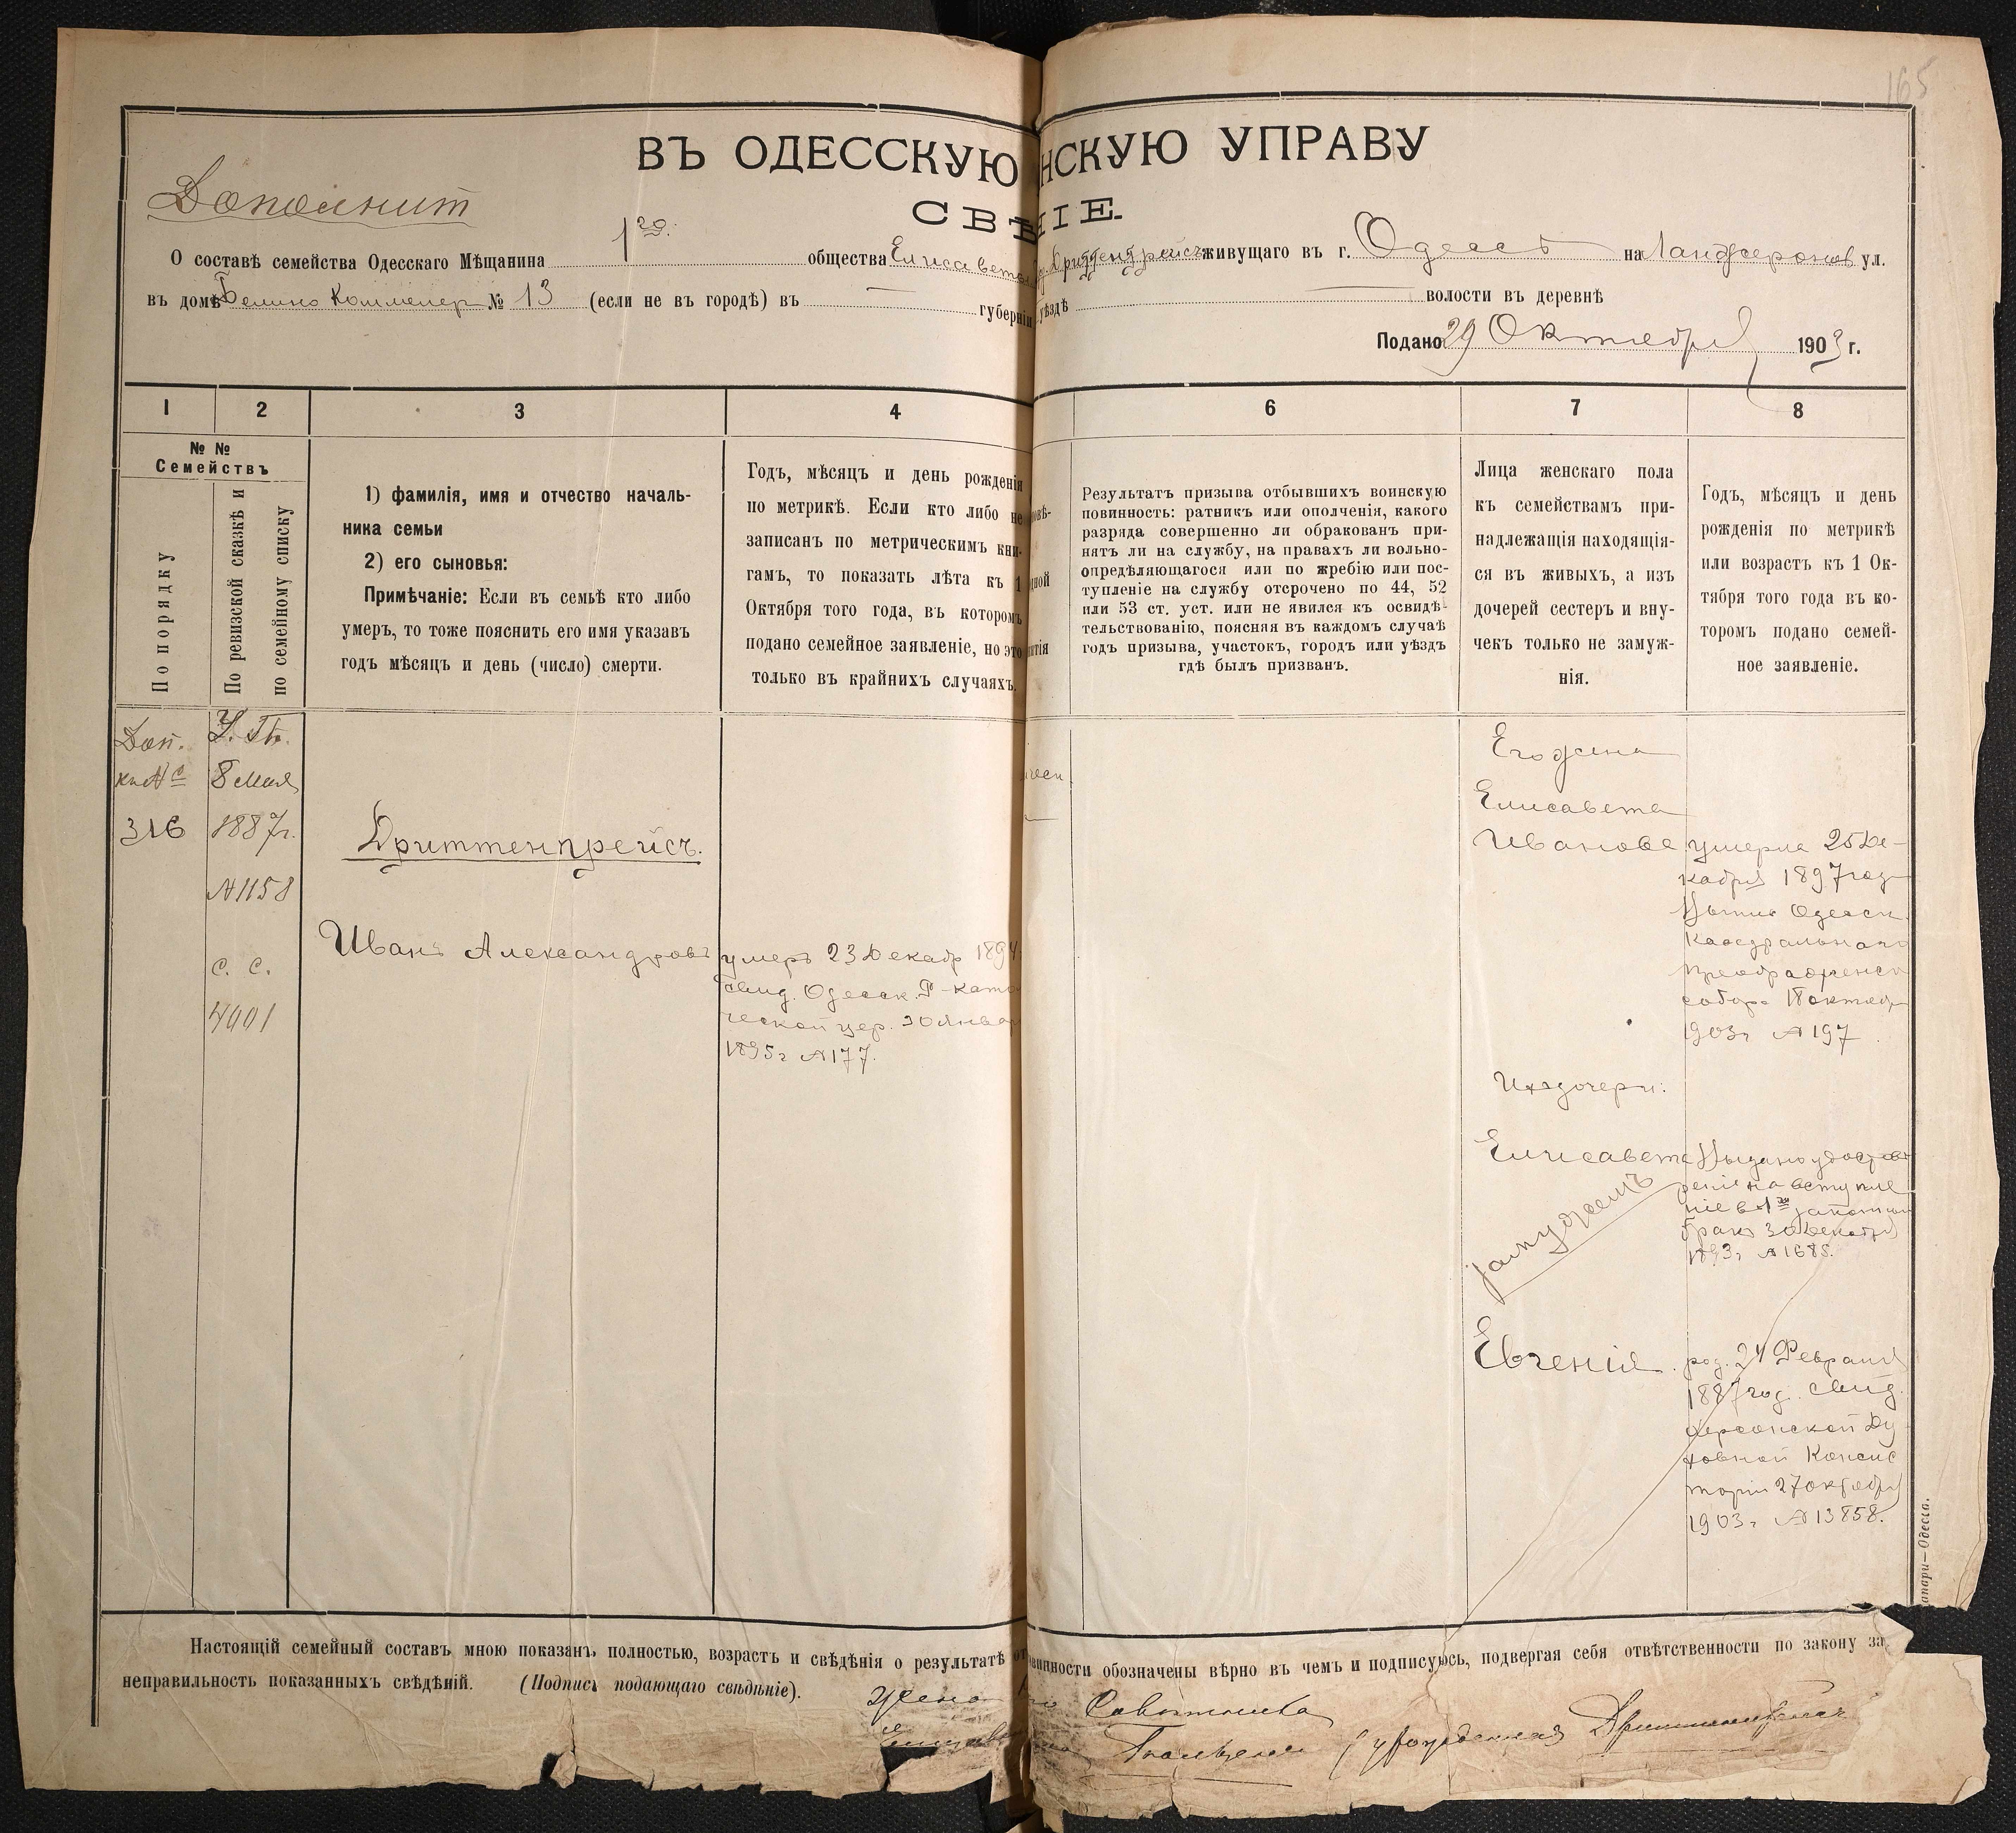 165
ВЪ ОДЕССКУЮ НСКУЮ УПРАВУ
Дополнит
СВѢ НІЕ.
О составѣ семейства Одесскаго Мѣщанина 1го. общества Елисавета Дриттенпрейсъ живущаго въ г. Одессѣ на Ланжеронов ул.
въ домѣ № 13 (если не въ городѣ) въ губерніи уѣздѣ волости въ деревнѣ
Подано 29 Октября 1903 г.
1 2 3 4 6 7 8
№ №
Семействъ
По порядку
По ревизской сказкѣ и
по семейному списку
1) фамилія, имя и отчество началь-
ника семьи
2) его сыновья:
Примѣчаніе: Если въ семьѣ кто либо
умеръ, то тоже пояснить его имя указавъ
годъ мѣсяцъ и день (число) смерти.
Годъ, мѣсяцъ и день рожденія
по метрикѣ. Если кто либо не
записанъ по метрическимъ кни-
гамъ, то показать лѣта къ 1
Октября того года, въ которомъ
подано семейное заявленіе, но это
только въ крайнихъ случаяхъ.
Результатъ призыва отбывшихъ воинскую
повинность: ратникъ или ополченія, какого
разряда совершенно ли обракованъ при-
нятъ ли на службу, на правахъ ли вольно-
опредѣляющагося или по жребію или пос-
тупленіе на службу отсрочено по 44, 52
или 53 ст. уст. или не явился къ освидѣ-
тельствованію, поясняя въ каждомъ случаѣ
годъ призыва, участокъ, городъ или уѣздъ
гдѣ былъ призванъ.
Лица женскаго пола
къ семействамъ при-
надлежащія находящія-
ся въ живыхъ, а изъ
дочерей сестеръ и вну-
чекъ только не замуж-
нія.
Годъ, мѣсяцъ и день
рожденія по метрикѣ
или возрастъ къ 1 Ок-
тября того года въ ко-
торомъ подано семей-
ное заявленіе.
Доп.
кн №
316
8 Мая
1887г.
№ 1158
с. с.
4001
Дриттенпрейсъ.
Иванъ Александровъ
умеръ 23 Декабр 1894
свид. Одесск. Р-като
ческой цер. 30 Январ
1895г № 177.
Его жена
Елисавета
Иванова
умерла 25 Де-
кабря 1897 год
Одесск.
Каѳедральнаго
Преображенск
собора 18 октяб
1903г № 197
Их дочери:
Елисавета
замужемъ
Выдано удостов
реніе на вступле
ніе в 1й законный
бракъ 30 Декабря
1893г № 1685.
Евгенія.
род. 24 Февраля
1887 год. свид.
Херсонской Ду
ховной Консис
торіи 27 октября
1903г № 13858.
Настоящій семейный составъ мною показанъ полностью, возрастъ и свѣдѣнія о результатѣ от винности обозначены вѣрно въ чемъ и подписуюсь, подвергая себя отвѣтственности по закону за
неправильность показанныхъ свѣдѣній. (Подпись подающаго свѣдѣніе).
жена
урожденная Дриттенпрейсъ
апари—Одесса.